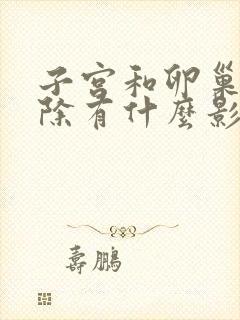 子宫和卵巢
除有什麼影
壽鵬